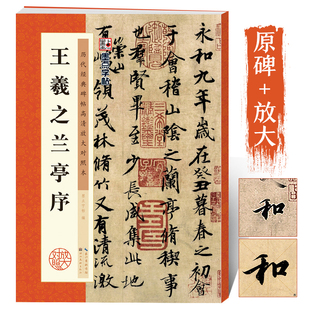 历代经典碑帖高清放大对照本
王羲之兰亭序
墨点字帖
永和九年歲在癸丑暮春之初會
于會稽山陰之蘭亭脩稧事
也羣賢畢至少長咸集此地
有崇山
峻領茂林脩竹又有清流激
原碑+放大
和
和